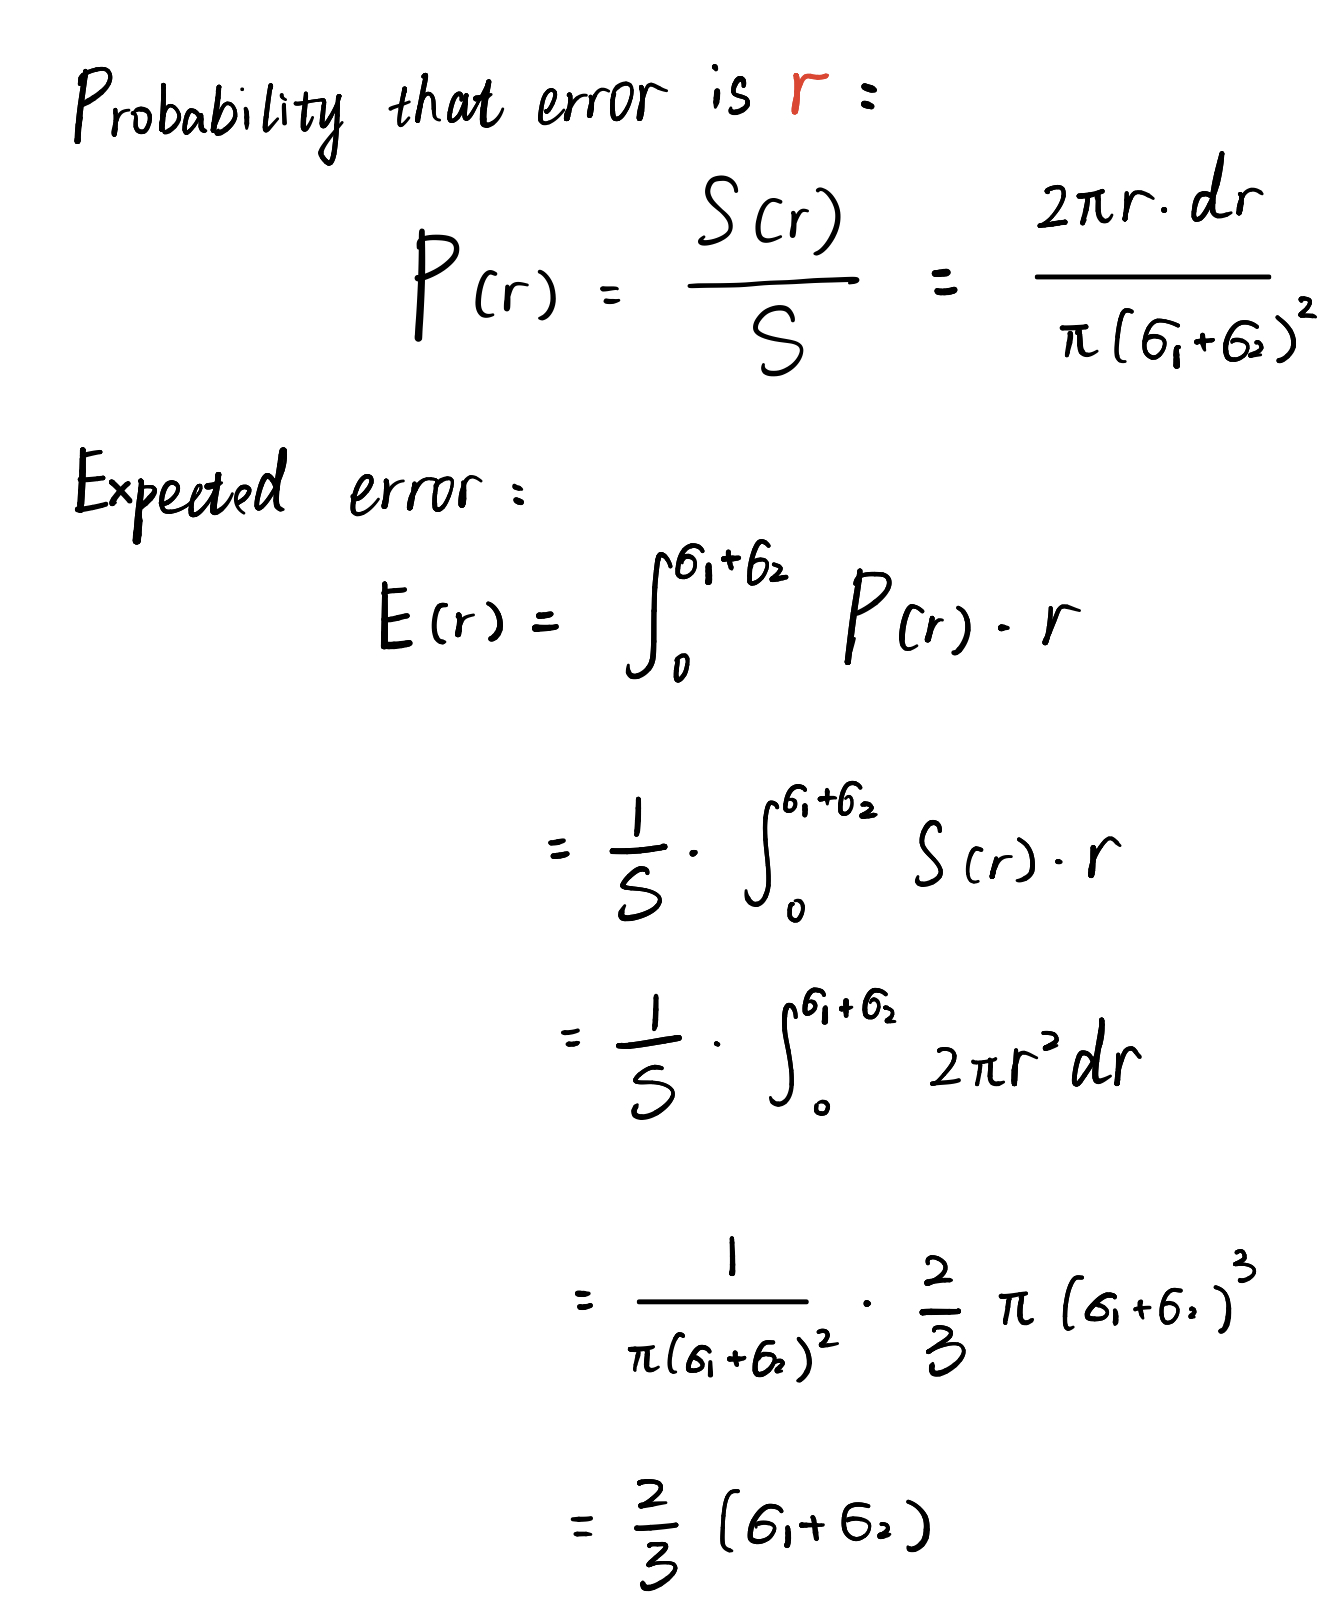 Probability that error is r :
P(r) = S(r) / S = 2πr · dr / π(σ₁+σ₂)²
Expected error :
E(r) = ∫₀^(σ₁+σ₂) P(r) · r
= 1/S · ∫₀^(σ₁+σ₂) S(r) · r
= 1/S · ∫₀^(σ₁+σ₂) 2πr² dr
= 1 / π(σ₁+σ₂)² · 2/3 π (σ₁+σ₂)³
= 2/3 (σ₁+σ₂)